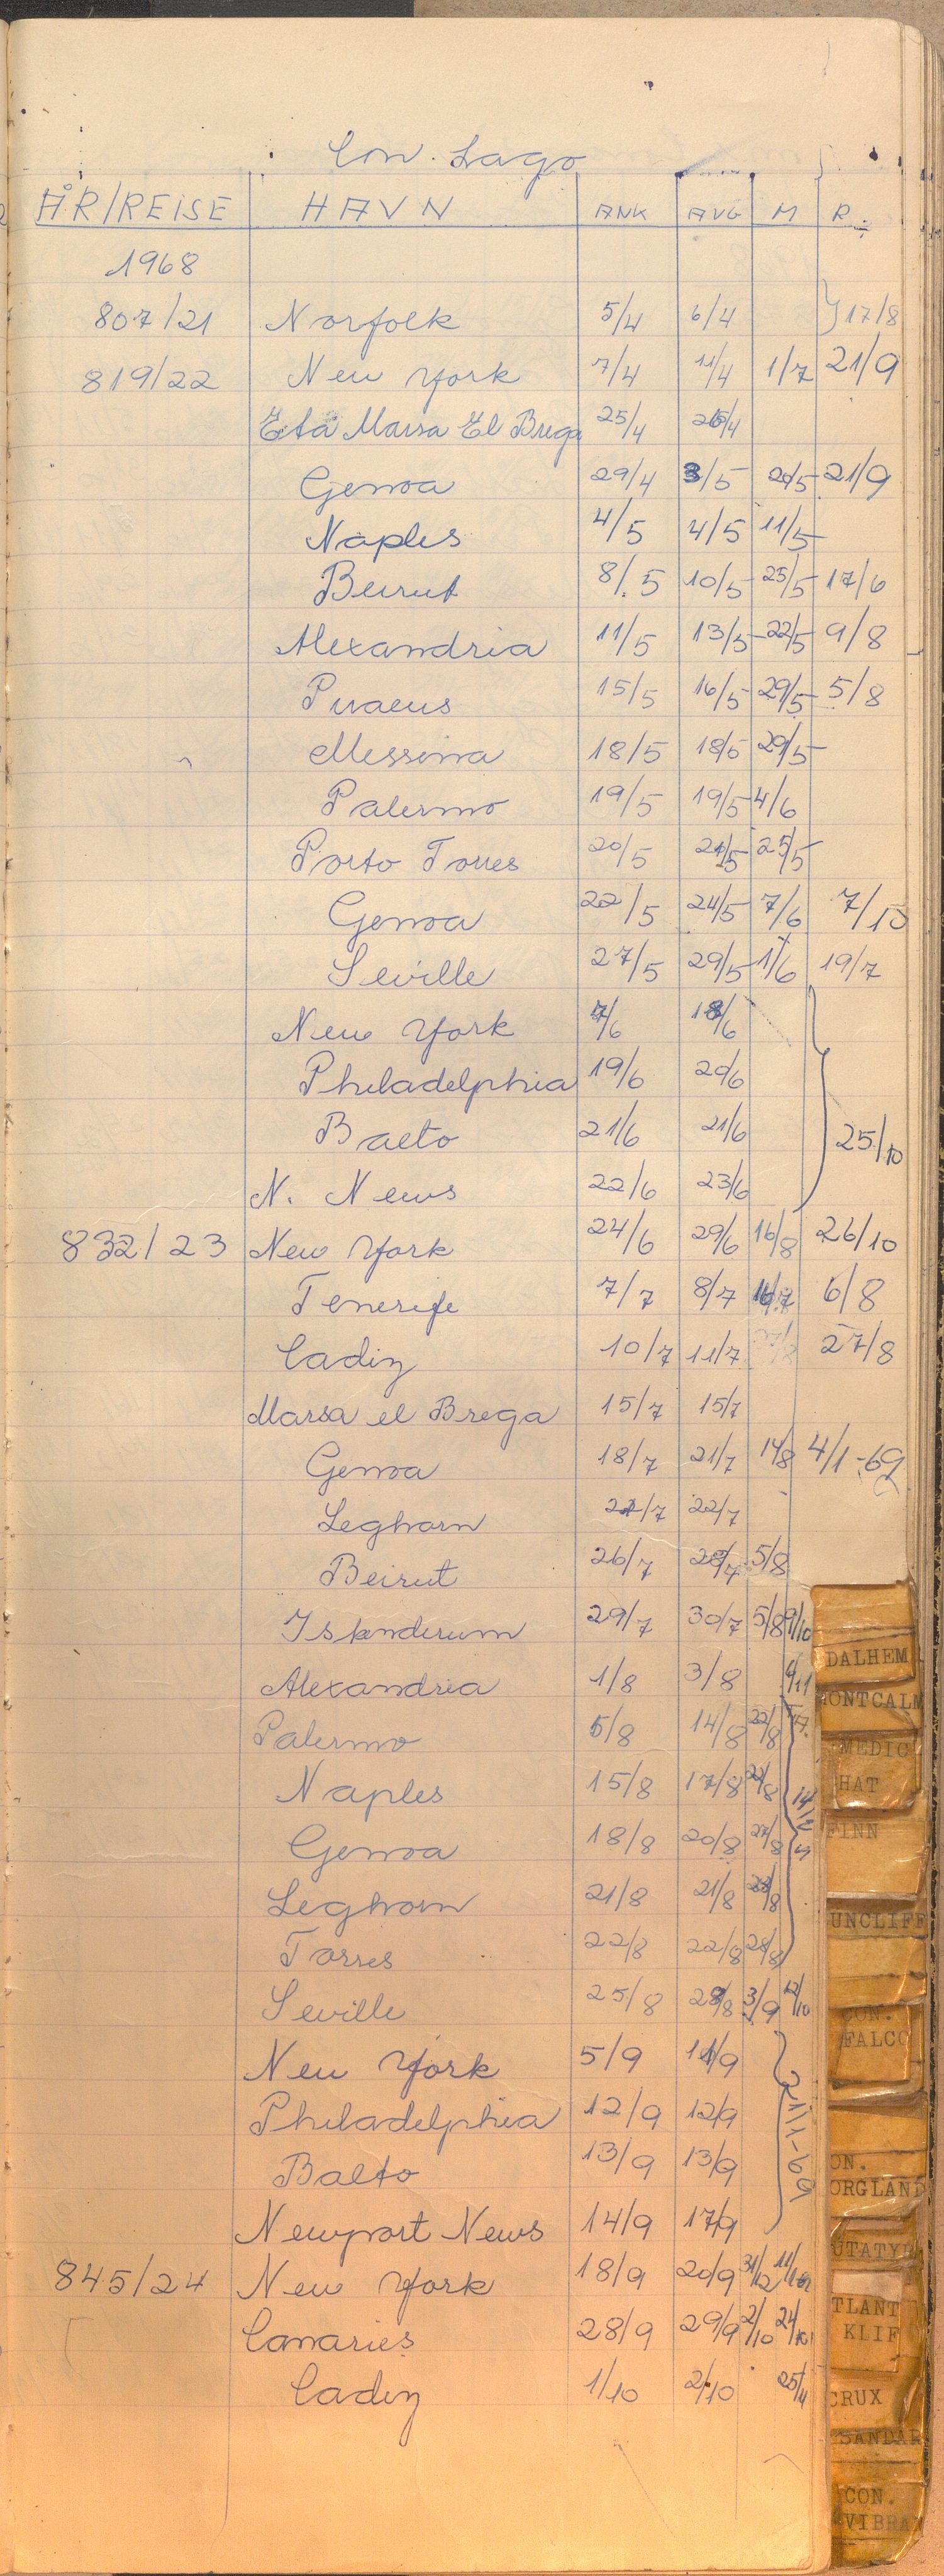 Con. Lago
ÅR/REISE HAVN ANK AVG M R.
1968
807/21 Norfolk 5/4 6/4 17/8
819/22 New York 7/4 11/4 1/7 21/9
Eta Marsa El Brega 25/4 26/4
Genoa 29/4 3/5 20/5 21/9
Naples 4/5 4/5 11/5
Beirut 8/5 10/5 25/5 17/6
Alexandria 11/5 13/5 22/5 9/8
Piraeus 15/5 16/5 29/5 5/8
Messina 18/5 18/5 29/5
Palermo 19/5 19/5 4/6
Porto Torres 20/5 21/5 25/5
Genoa 22/5 24/5 7/6 7/10
Seville 27/5 29/5 1/6 19/7
New York 7/6 18/6
Philadelphia 19/6 20/6
Balto 21/6 21/6 25/10
N. News 22/6 23/6
832/23 New York 24/6 29/6 16/8 26/10
Tenerife 7/7 8/7 16/7 6/8
Cadiz 10/7 11/7 27/8
Marsa el Brega 15/7 15/7
Genoa 18/7 21/7 14/8 4/1-69
Leghorn 22/7 22/7
Beirut 26/7 28/7 5/8
Iskenderum 29/7 30/7 5/8 9/10
Alexandria 1/8 3/8 4/11
Palermo 5/8 14/8 22/8
Naples 15/8 17/8 22/8
Genoa 18/8 20/8 27/8
Leghorn 21/8 21/8 28/8
Torres 22/8 22/8 28/8
Seville 25/8 28/8 3/9 12/10
New York 5/9 11/9
Philadelphia 12/9 12/9 21/1-69
Balto 13/9 13/9
Newport News 14/9 17/9
845/24 New York 18/9 20/9 31/12
Canaries 28/9 29/9 2/10 24/10
Cadiz 1/10 2/10 25/11
DALHEM
MONTCALM
MEDIC
HAT
FINN
UNCLIFF
CON.
FALCO
ON.
ORGLAND
UTATY
TLANT
KLIF
CRUX
YSANDAR
CON.
VIBRA